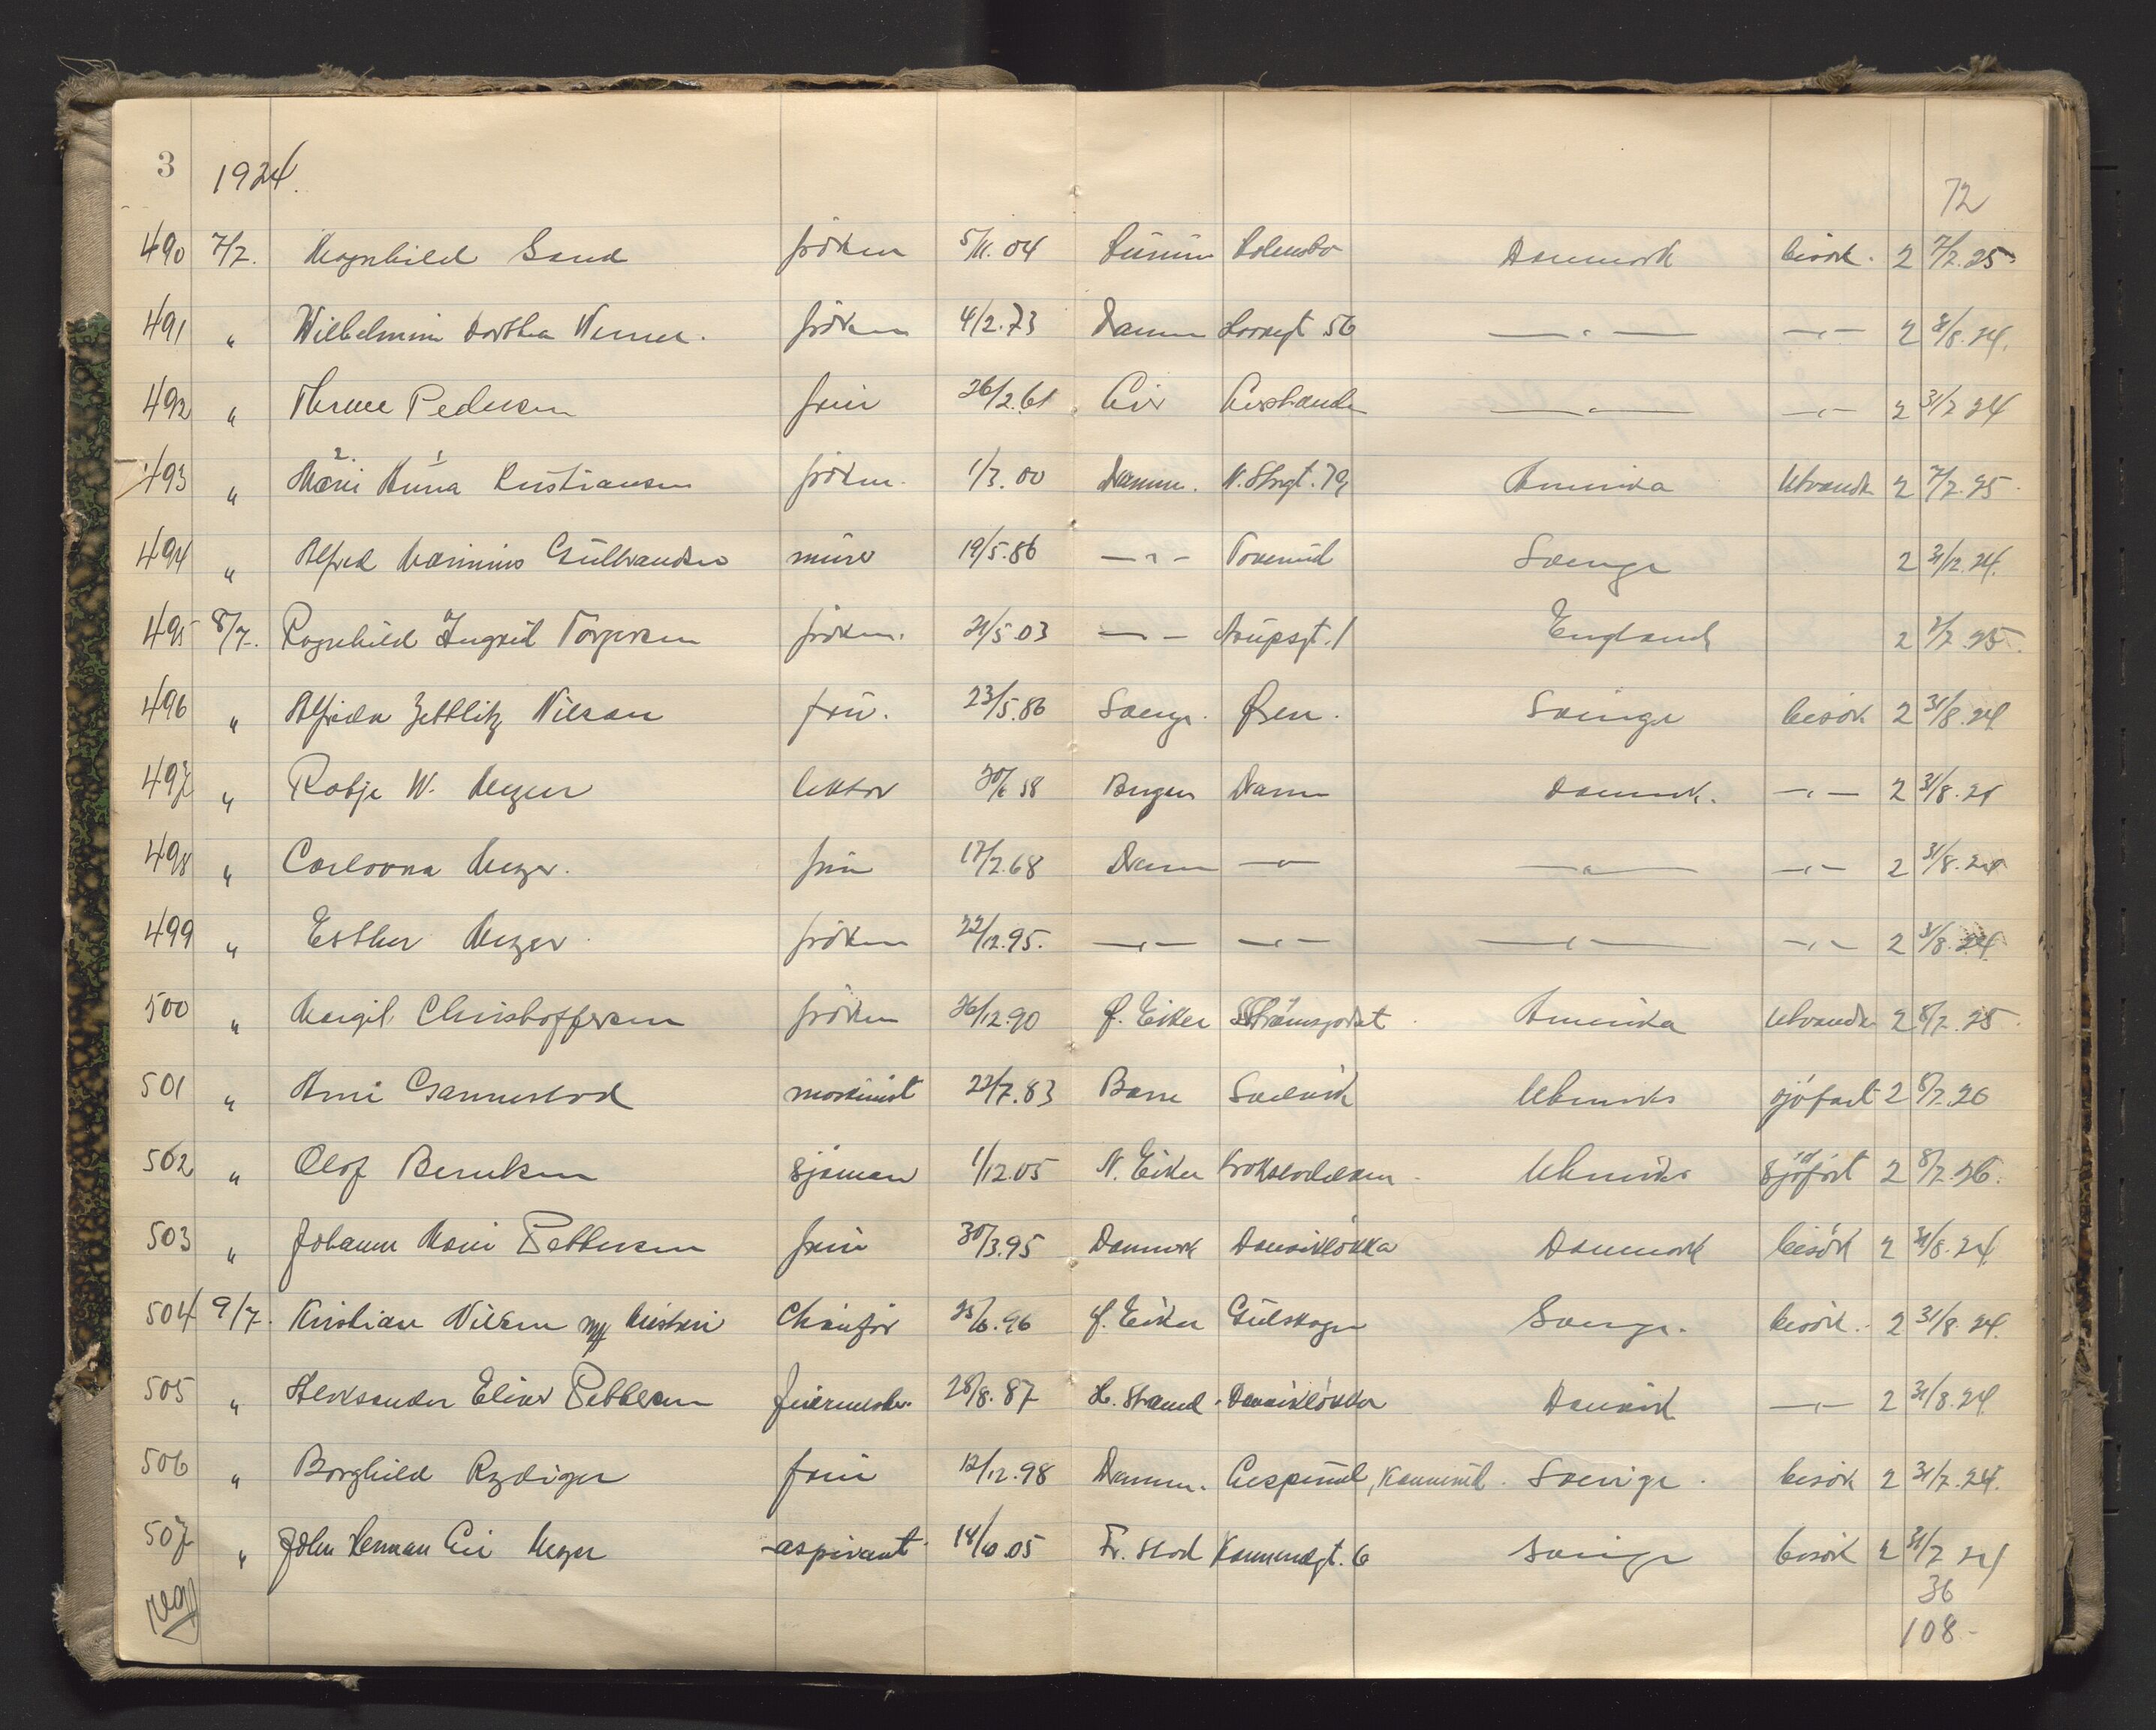 3 1924.
72
490 7/7. Magnhild Sand fröken 5/11.04 Lier Holmsbo Danmark besök. 2 7/7.25
491 " Wilhelmine Dorthea Werner. fröken 4/2.73 Dramm Storgt 56 — " — — " — 2 8/8.24.
492 " Pedersen frue 26/2.61 — " — — " — 2 31/7 24
493 " Marie Anna Kristiansen fröken. 1/3.00 Dramm. N. Strgt. 79 Amerika Utvandr 2 7/7.25.
494 " Alfred Marinius Gulbrandsen murer 19/5.86 — " — Sverige 2 31/12.24.
495 8/7. Ragnhild Ingrid Torgersen fröken. 21/5.03 — " — England 2 8/7.25.
496 " Alfrida Zettlitz Nilsen frue. 23/5.86 Sverige. Øren. Sverige besök 2 31/8.24
497 " W. Meyer lektor 30/6 58 Bergen Dramm Danmark. — " — 2 31/8.24
498 " Carlovna Meyer. frue 17/7.68 Dramm — " — — " — — " — 2 31/8.24
499 " Esther Meyer. fröken 22/12.95. — " — — " — — " — — " — 2 31/8.24
500 " Margit Christoffersen fröken 26/12.90 Ø. Eiker Strömsgodset Amerika Utvandr 2 8/7.25.
501 " Arne Gammelrod maskinist 22/7.83 Svelvik Utenriks sjöfart 2 8/7.26
502 " Olof Berntsen sjöman 1/12.05 N. Eiker Krokstadelven Utenriks sjöfart 2 8/7.26.
503 " Johanne Marie Pettersen frue 30/3.95 Danmark Danvikløkka Danmark besök 2 31/8.24.
504 9/7. Kristian Nilsen m/ hustru Chauffør 25/6.96 Ø. Eiker Gulskogen Sverige. besök. 2 31/8.24.
505 " Aleksander Elias Pettersen feiermester. 28/8.87 Danvikløkka Danmark — " — 2 31/8.24
506 " Borghild Rydiger frue 12/12.98 Dramm. Sverige. besök 2 31/7.24.
507 " John Herman Meyer aspirant 14/10.05 Fr. stad Konnerudgt. 6 Sverige besök 2 31/7 24
36
108-